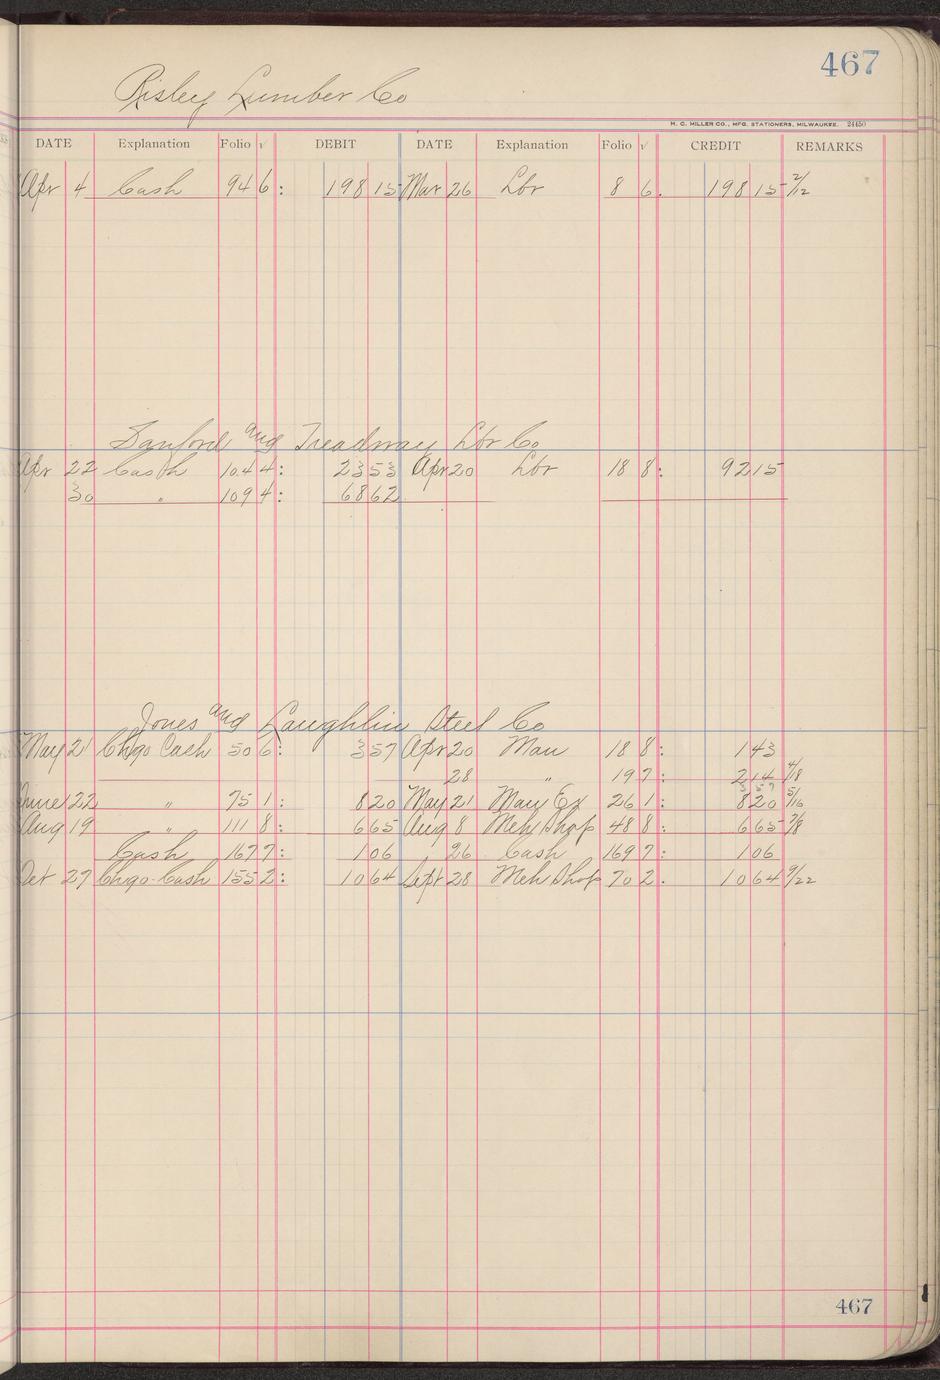 467
Risley Lumber Co
H. C. MILLER CO., MFG. STATIONERS, MILWAUKEE. 24450
DATE Explanation Folio √ DEBIT DATE Explanation Folio √ CREDIT REMARKS
Apr 4 Cash 94 6: 198 15 Mar 26 Lbr 8 6. 198 15 2/12
Sanford and Treadway Lbr Co
Apr 22 Cash 104 4: 23 53 Apr 20 Lbr 18 8: 92 15
30 " 109 4: 68 62
Jones and Laughlin Steel Co
May 21 Chgo Cash 50 6: 3 57 Apr 20 Man 18 8: 1 43
28 " 19 7: 2 14 4/18
3 57
June 22 " 75 1: 8 20 May 21 Man Ex 26 1: 8 20 5/16
Aug 19 " 111 8: 6 65 Aug 8 Meh Shop 48 8: 6 65 7/8
Cash 167 7: 1 06 26 Cash 169 7: 1 06
Oct 27 Chgo Cash 155 2: 10 64 Sept 28 Meh Shop 70 2. 10 64 9/22
467